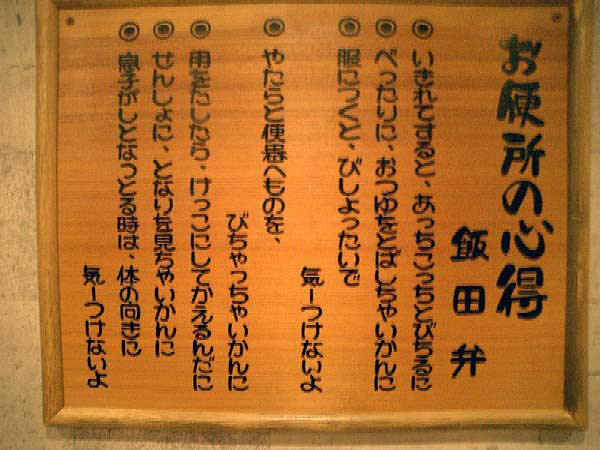 お便所の心得
飯田弁
◉いきれてすると、あっちこっちとびちるに
◉べったりに、おつゆをとばしちゃいかんに
◉服につくと、びしょったいで
気ーつけないよ
◉やたらと便器へものを、
びちゃっちゃいかんに
◉用をたしたら、けっこにしてかえるんだに
◉せんしょに、となりを見ちゃいかんに
◉息子がしとなっとる時は、体の向きに
気ーつけないよ